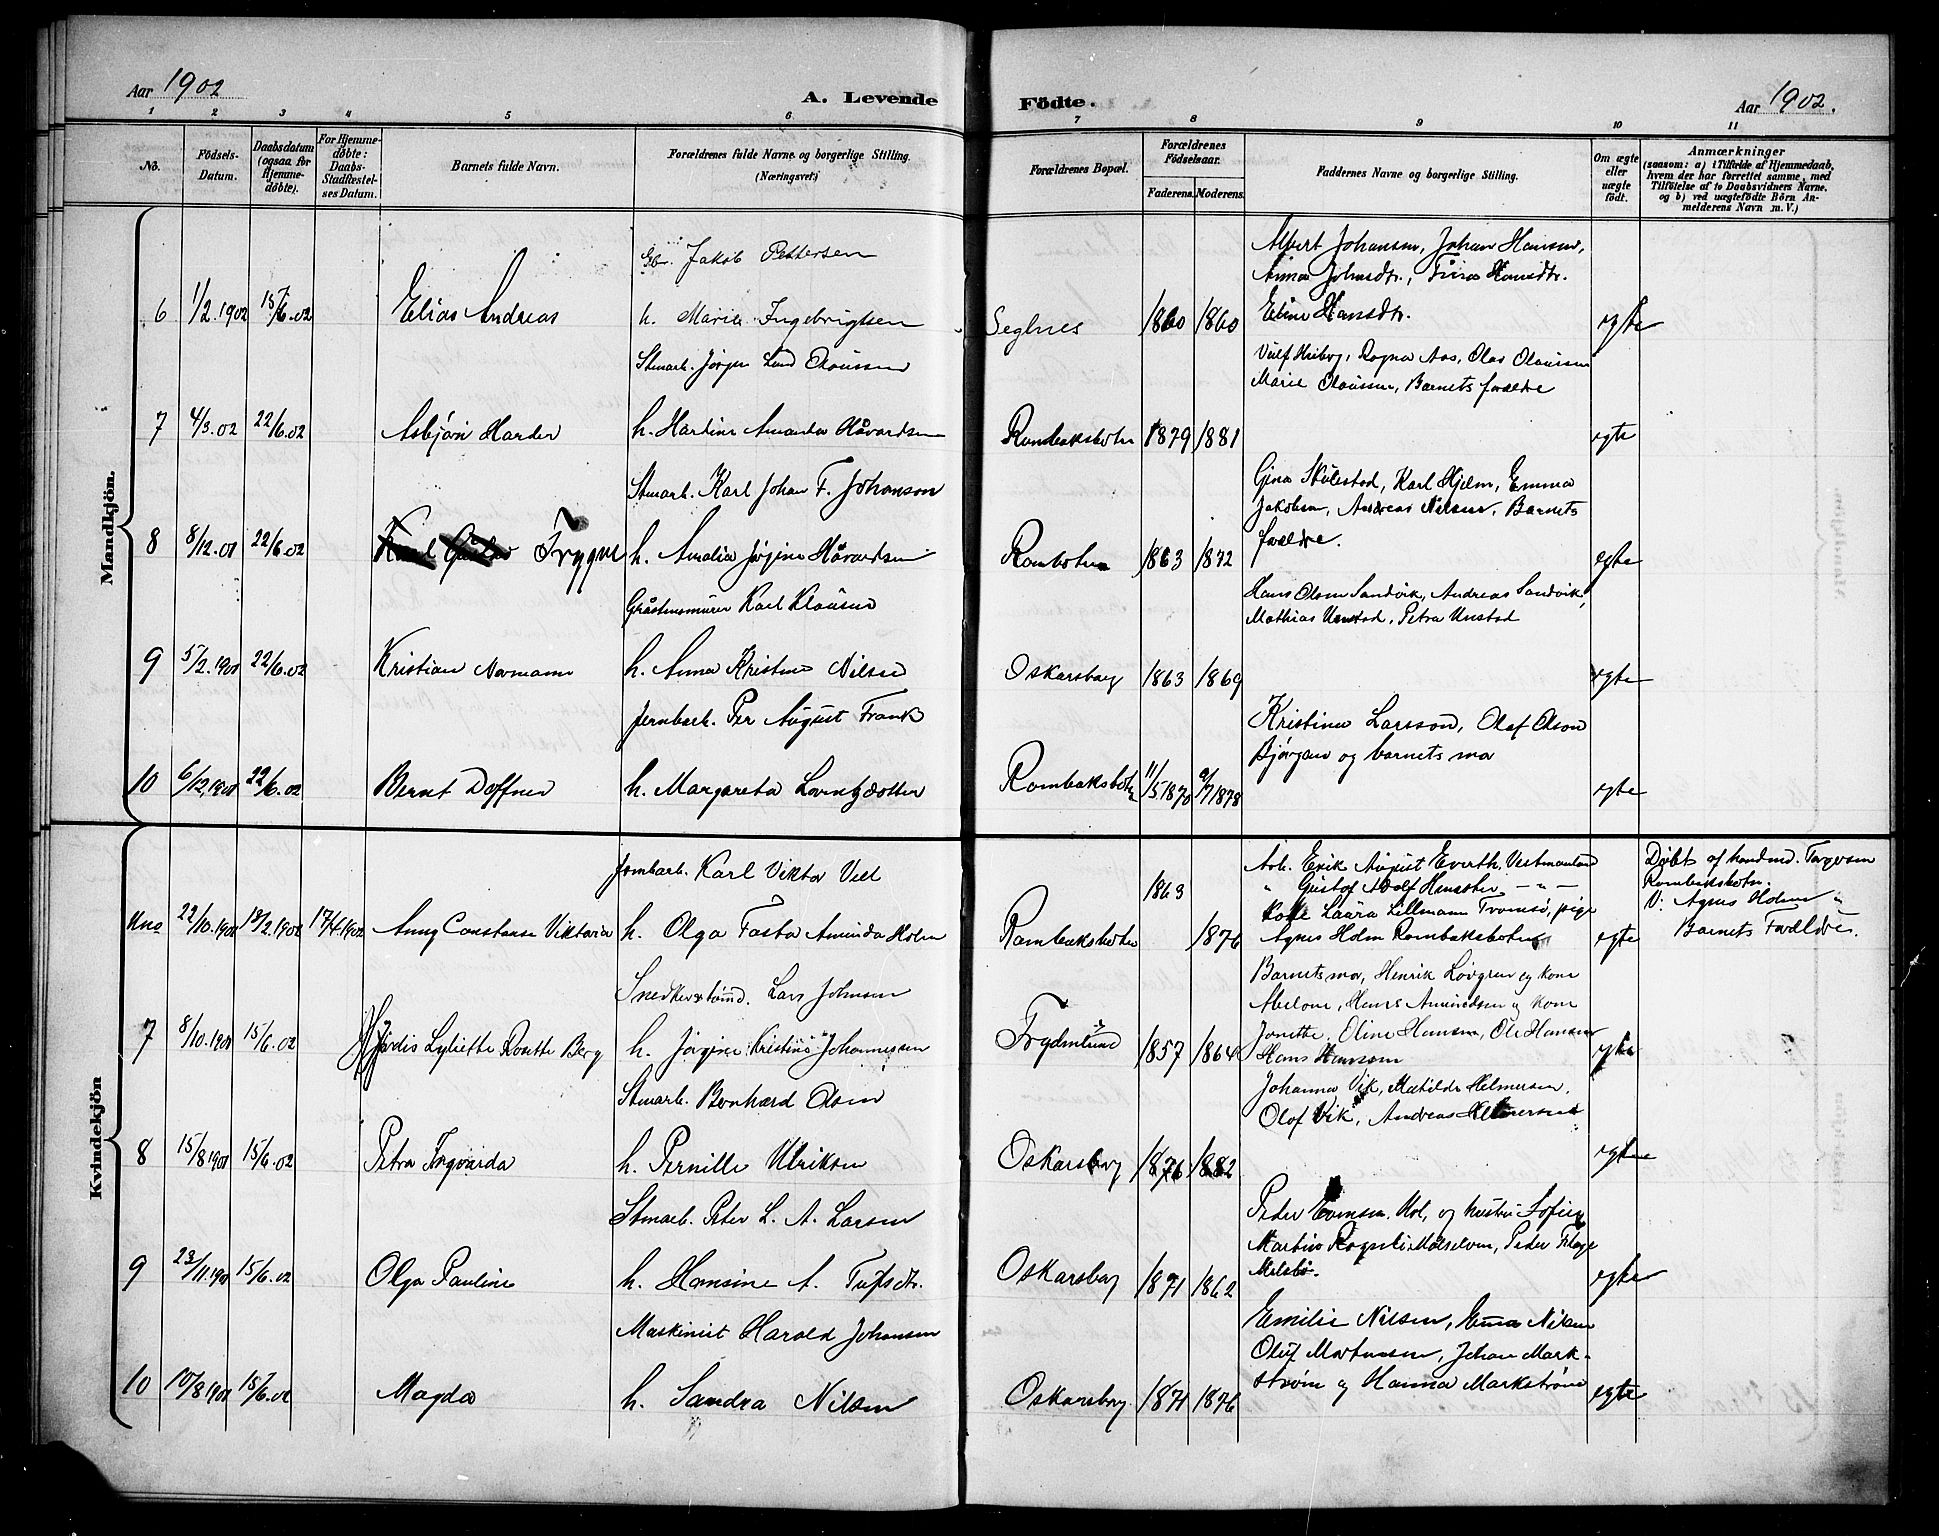 Aar 1902
A. Levende
Födte.
Aar 1902.
1 2 3 4 5 6 7 8 9 10 11
No.
Födsels-Datum.
Daabsdatum (ogsaa for Hjemme-døbte).
For Hjemme-døbte: Daabs-Stadfæstel-ses Datum.
Barnets fulde Navn.
Forældrenes fulde Navne og borgerlige Stilling. (Næringsvei)
Forældrenes Bopæl.
Forældrenes Födselsaar.
Faderens. Moderens.
Faddernes Navne og borgerlige Stilling.
Om ægte eller uægte født.
Anmærkninger
(saasom: a) i Tilfælde af Hjemmedaab, hvem der har forrettet samme, med Tilføielse af to Daabsvidners Navne. og b) ved uægtefödte Börn An-melderens Navn m. V.)
Mandkjön.
Gbr. Jakob Pettersen
Albert Johansen, Johan Hansen,
Anna Johnsdtr., Hansdtr.
6 1/2.1902 15/6.02 Elias Andreas h. Marie Ingebrigtsen Seglnes 1860 1860 Eline Hansdtr. egte
Stenarb. Jørgen Lund Olaussen
Ragna Aas, Olav Olaussen
Marie Olaussen, Barnets forældre
7 4/3.02 22/6.02 Asbjørn Harder h. Martine Amanda Håvardsen Rombaksbotn 1879 1881 egte
Stenarb. Karl Johan F. Johanson
Gina Skulestad, Karl Hjelm, Emma
Jakobsen, Andreas Nilsen, Barnets
forældre.
8 8/12.01 22/6.02 Karl Trygve h. Amalia Jørgine Håvardsen Rombotn 1863 1872 egte
Gråstensmurer Karl Klausen
Hans Olsen Sandvik, Andreas Sandvik,
Mathias Unstad, Petra Unstad
9 5/2.1901 22/6.02 Kristian Normann h. Anna Kristine Nilsen Oskarsborg 1863 1869 egte
Jernbarb. Per August Frank
Kristina Larsson, Olof Olson
Bjørgan og barnets mor
10 6/12.1901 22/6.02 Bernt Daffner h. Margareta Lorentzdotter Rombaksbotn 11/5.1870 9/7 1878 egte
Kvindekjön
Jernbarb. Karl Viktor
Arb. Erik August Everth, Vestmanland
1863 " Gustof Adolf - " -
Døbt af handmd. Torgersen
Rombaksbotn.
Laura Lillmann Tromsø, pige
V: Agnes Holm "
22/10.1901 18/2.1902 17/4.1902 Anny Constanse Viktoria h. Olga Fasta Aminda Holm Rombaksbotn 1876 Agnes Holm Rombaksbotn egte Barnets Forældre.
Lars Johnsen
Barnets mor, Henrik Løvgren og kone
Abelone, Hans Amundsen og kone
Jonette, Oline Hansen, Ole Hansen
7 8/10.1901 15/6.02 Hjørdis Lyliette Rosette Berg h. Jørgine Kristine Johannessen Frydenlund 1857 1864 Hans Hansen egte
Stenarb. Bernhard Olsen
Johanna Vik, Matilde Helmersen,
Olof Vik, Andreas Helmersen
8 15/8 1901 15/6.02 Petra Ingvarda h. Pernille Ulriksen Oskarsborg 1876 1882 egte
Stenarb. Peter L. A. Larsen
Peder Evensen, Mol, og hustru Sofie,
Martin Målselven, Peder
9 23/11.1901 15/6.02 Olga Pauline h. Hansine A. Oskarsborg 1871 1862 egte
Maskinist Harald Johansen
Emilie Nilsen, Emma Nilsen
Oluf Martinsen, Johan Mark-
10 10/8 1901 15/6.02 Magda h. Sandra Nilsen Oskarsborg 1871 1876 strøm og Hanna Markstrøm egte